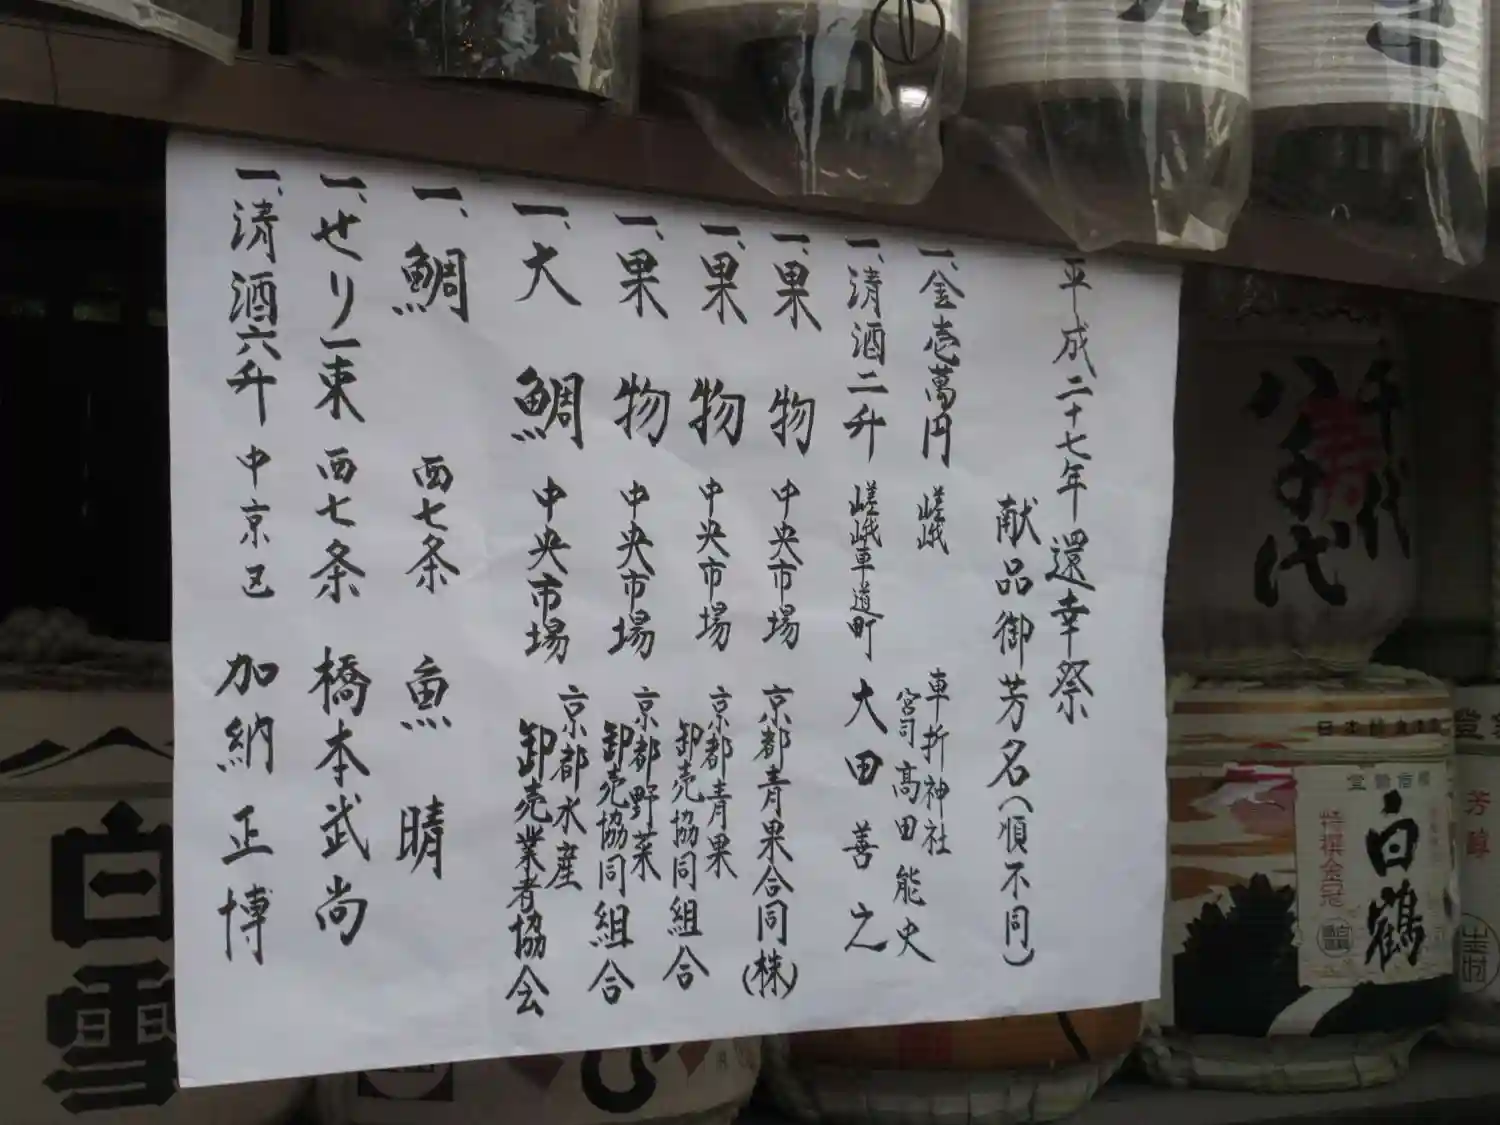 平成二十七年還幸祭
献品御芳名(順不同)
一、金壱萬円 嵯峨 車折神社
宮司 高田能史
一、清酒二升 嵯峨車道町 大田善之
一、果物 中央市場 京都青果合同(株)
一、果物 中央市場 京都青果
卸売協同組合
一、果物 中央市場 京都野菜
卸売協同組合
一、大鯛 中央市場 京都水産
卸売業者協会
一、鯛 西七条 魚晴
一、せり一束 西七条 橋本武尚
一、清酒六升 中京区 加納正博
千代
寿
八千代
白鶴
特撰金冠
芳醇
白雪